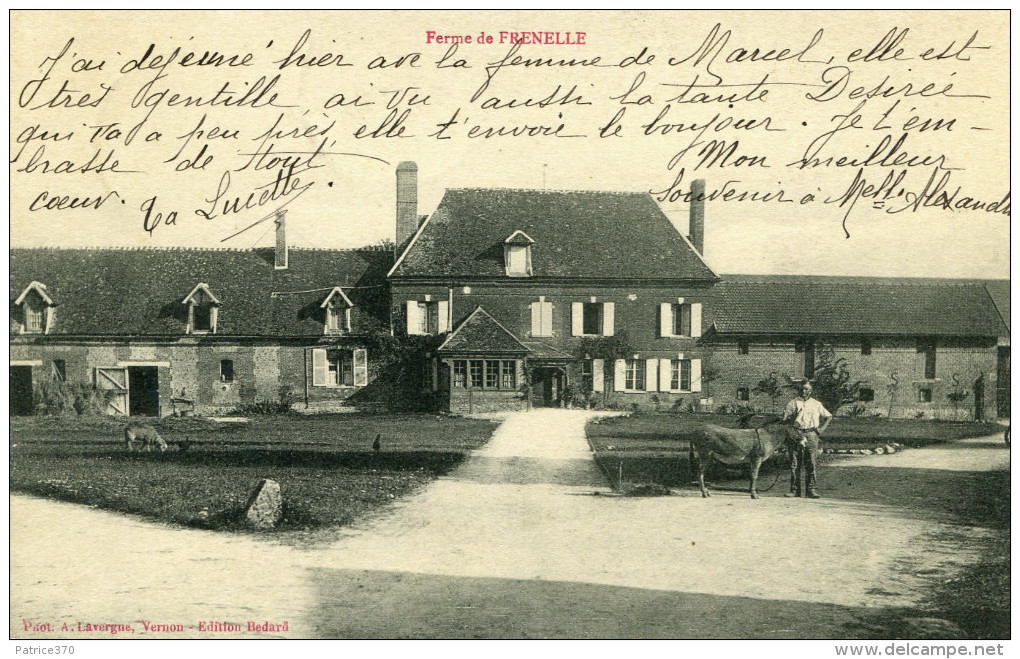 Ferme de FRENELLE
J'ai déjeuné hier avec la femme de Marcel, elle est
très gentille, ai vu aussi la tante Desirée
qui va a peu près, elle t'envoie le bonjour. Je t'em-
brasse de tout
cœur.
Ta Lucette.
Mon meilleur
Souvenir à Melle. Alexandre
Phot. A. Lavergne, Vernon - Edition Bedard
© Patrice370
www.delcampe.net